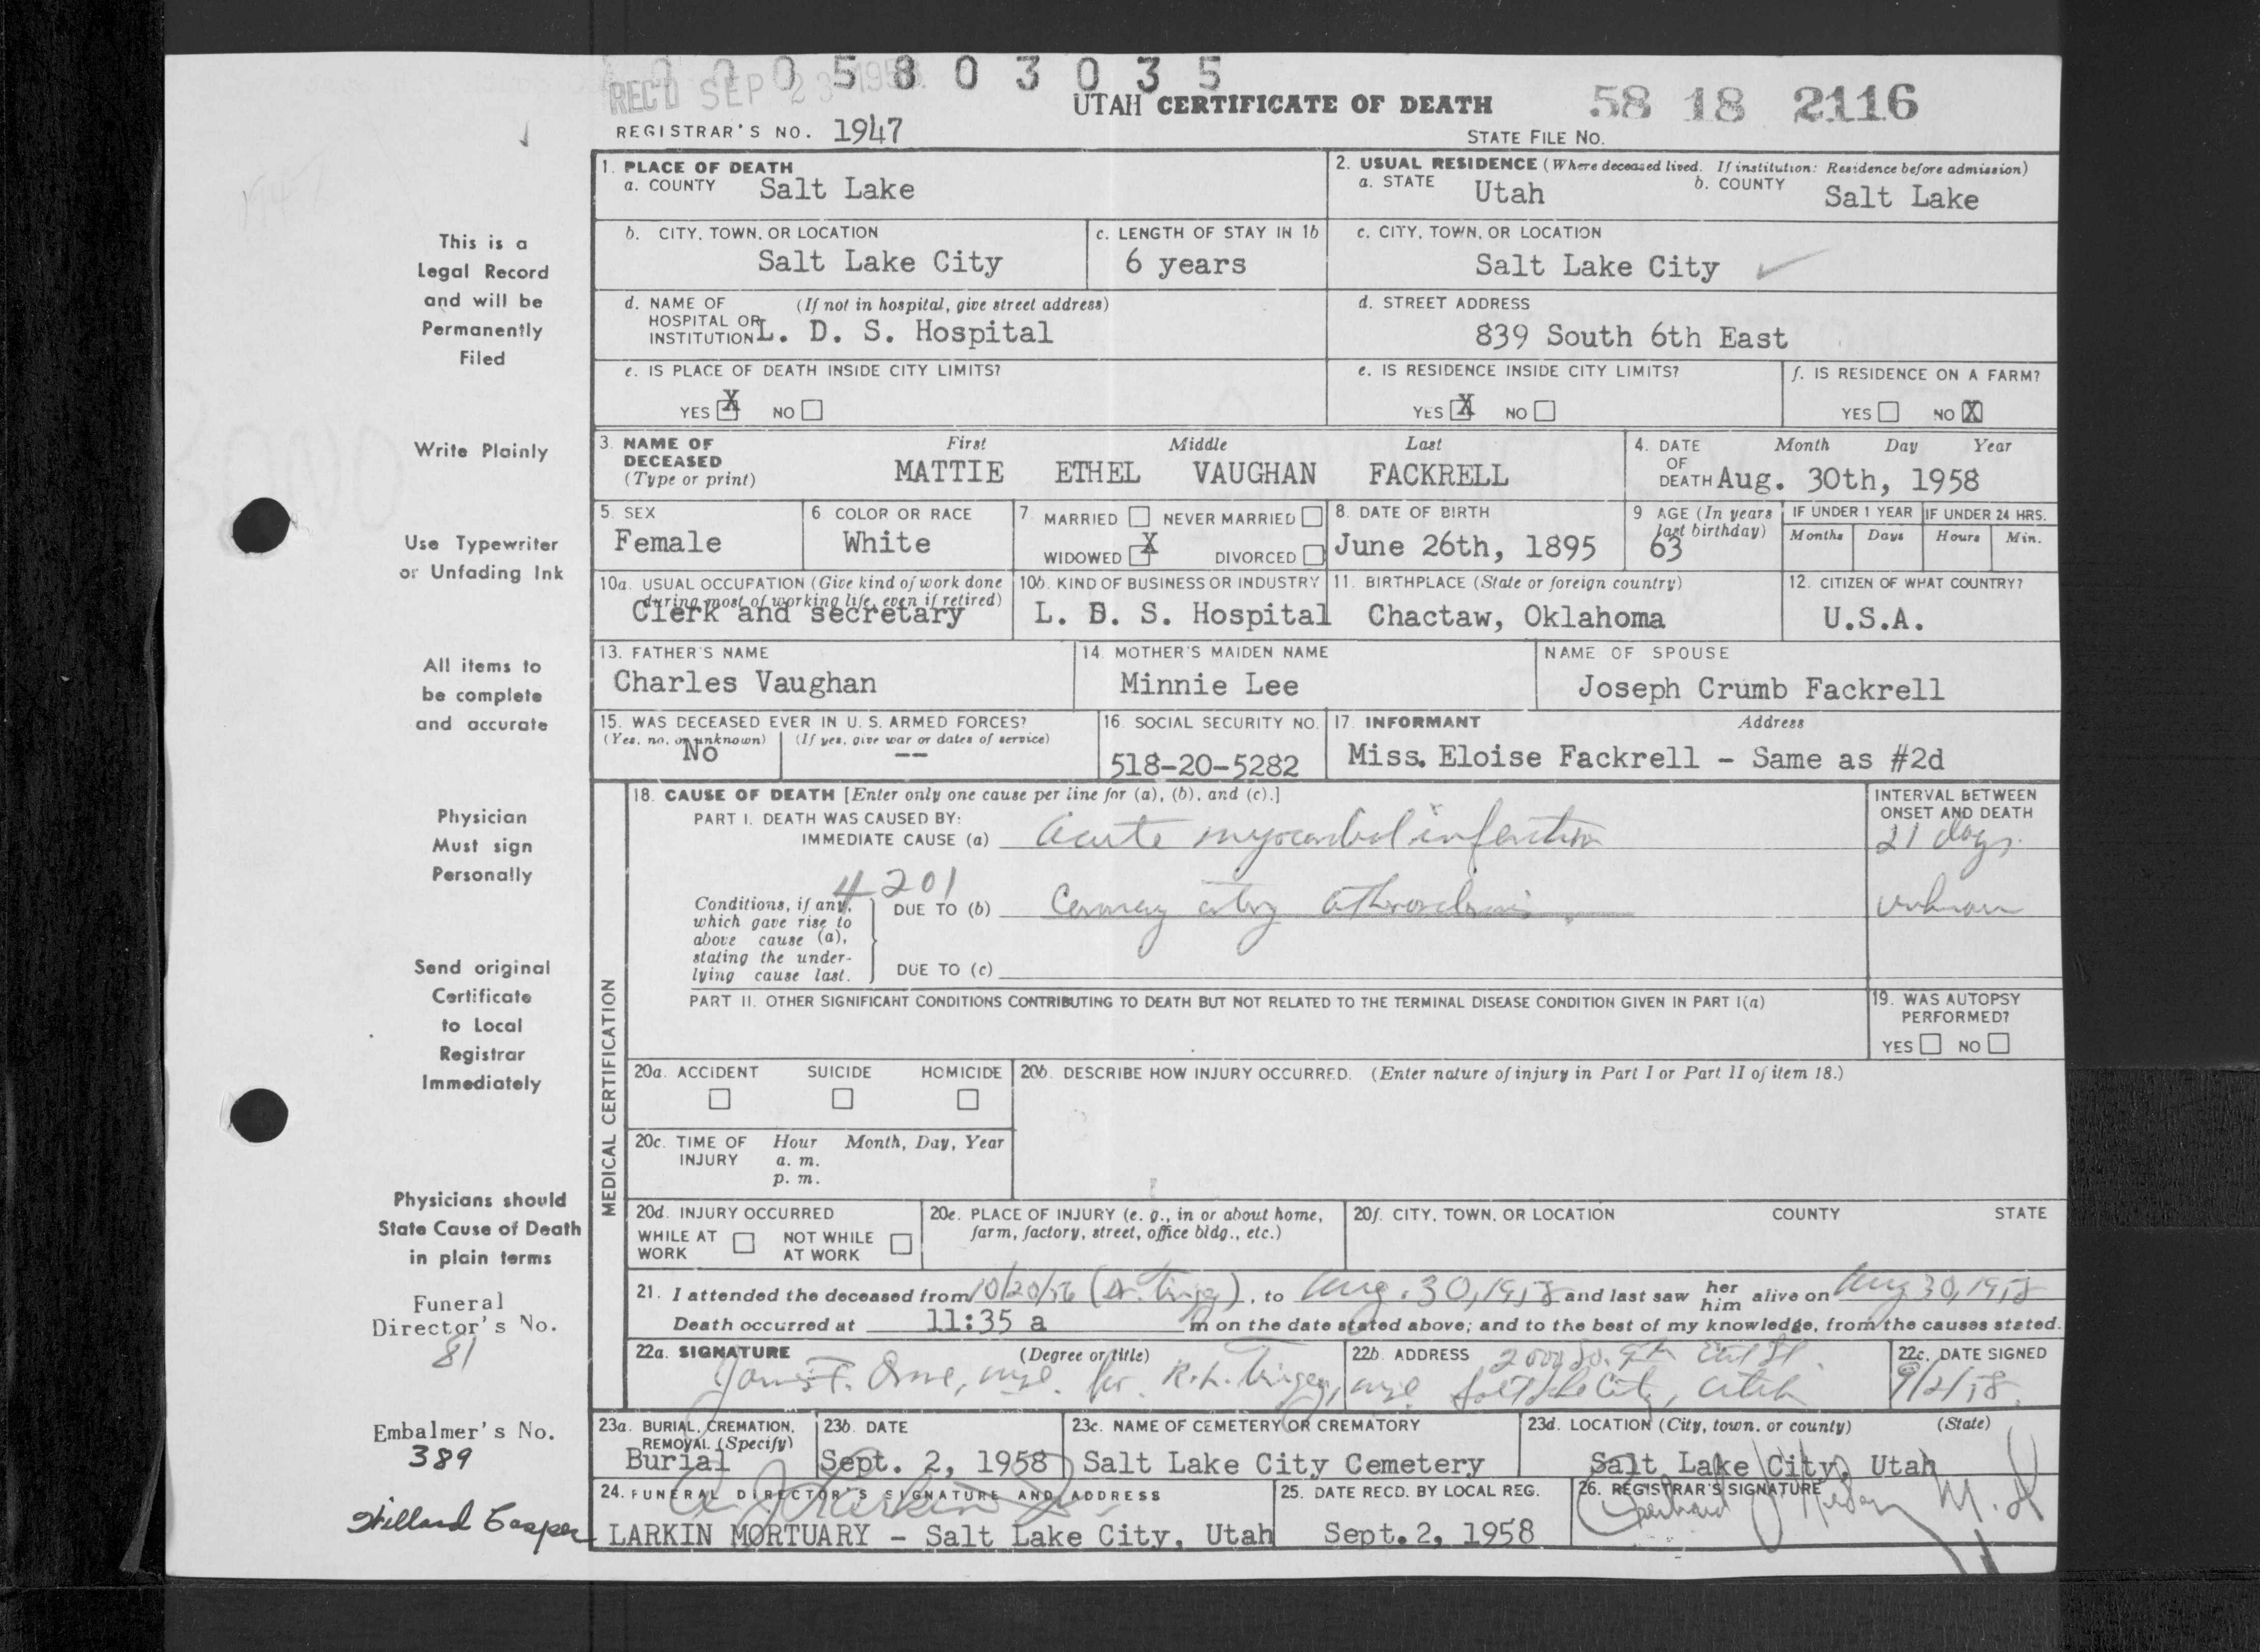 0005803035
REC'D SEP 23 1958
UTAH CERTIFICATE OF DEATH
58 18 2116
REGISTRAR'S NO. 1947
STATE FILE NO.
1. PLACE OF DEATH
a. COUNTY Salt Lake
2. USUAL RESIDENCE (Where deceased lived. If institution: Residence before admission)
a. STATE Utah b. COUNTY Salt Lake
b. CITY, TOWN, OR LOCATION
Salt Lake City
c. LENGTH OF STAY IN 1b
6 years
c. CITY, TOWN, OR LOCATION
Salt Lake City
d. NAME OF HOSPITAL OR INSTITUTION (If not in hospital, give street address)
L. D. S. Hospital
d. STREET ADDRESS
839 South 6th East
e. IS PLACE OF DEATH INSIDE CITY LIMITS?
YES X NO
e. IS RESIDENCE INSIDE CITY LIMITS?
YES X NO
f. IS RESIDENCE ON A FARM?
YES NO X
3. NAME OF DECEASED (Type or print)
First Middle Last
MATTIE ETHEL VAUGHAN FACKRELL
4. DATE OF DEATH Month Day Year
Aug. 30th, 1958
5. SEX
Female
6. COLOR OR RACE
White
7. MARRIED NEVER MARRIED
WIDOWED X DIVORCED
8. DATE OF BIRTH
June 26th, 1895
9 AGE (In years last birthday)
63
IF UNDER 1 YEAR IF UNDER 24 HRS.
Months Days Hours Min.
10a. USUAL OCCUPATION (Give kind of work done during most of working life, even if retired)
Clerk and secretary
10b. KIND OF BUSINESS OR INDUSTRY
L. D. S. Hospital
11. BIRTHPLACE (State or foreign country)
Chactaw, Oklahoma
12. CITIZEN OF WHAT COUNTRY?
U.S.A.
13. FATHER'S NAME
Charles Vaughan
14. MOTHER'S MAIDEN NAME
Minnie Lee
NAME OF SPOUSE
Joseph Crumb Fackrell
15. WAS DECEASED EVER IN U. S. ARMED FORCES?
(Yes, no, or unknown) (If yes, give war or dates of service)
No --
16. SOCIAL SECURITY NO.
518-20-5282
17. INFORMANT Address
Miss. Eloise Fackrell - Same as #2d
MEDICAL CERTIFICATION
18. CAUSE OF DEATH [Enter only one cause per line for (a), (b), and (c).]
PART I. DEATH WAS CAUSED BY:
IMMEDIATE CAUSE (a) Acute myocardial infarction
INTERVAL BETWEEN ONSET AND DEATH
21 days
4201
Conditions, if any, which gave rise to above cause (a), stating the underlying cause last.
DUE TO (b) Coronary artery atherosclerosis
unknown
DUE TO (c)
PART II. OTHER SIGNIFICANT CONDITIONS CONTRIBUTING TO DEATH BUT NOT RELATED TO THE TERMINAL DISEASE CONDITION GIVEN IN PART I(a)
19. WAS AUTOPSY PERFORMED?
YES NO
20a. ACCIDENT SUICIDE HOMICIDE
20b. DESCRIBE HOW INJURY OCCURRED. (Enter nature of injury in Part I or Part II of item 18.)
20c. TIME OF INJURY Hour Month, Day, Year
a. m.
p. m.
20d. INJURY OCCURRED
WHILE AT WORK NOT WHILE AT WORK
20e. PLACE OF INJURY (e. g., in or about home, farm, factory, street, office bldg., etc.)
20f. CITY, TOWN, OR LOCATION COUNTY STATE
21. I attended the deceased from 10/20/56 (Dr. Tingey), to Aug. 30, 1958 and last saw her him alive on Aug 30, 1958
Death occurred at 11:35 a m on the date stated above; and to the best of my knowledge, from the causes stated.
22a. SIGNATURE (Degree or title)
James F. Orme, M.D. for R. L. Tingey, M.D.
22b. ADDRESS 2000 So. 9th East St.
Salt Lake City, Utah
22c. DATE SIGNED
9/2/58
23a. BURIAL, CREMATION, REMOVAL (Specify)
Burial
23b. DATE
Sept. 2, 1958
23c. NAME OF CEMETERY OR CREMATORY
Salt Lake City Cemetery
23d. LOCATION (City, town, or county) (State)
Salt Lake City, Utah
24. FUNERAL DIRECTOR'S SIGNATURE AND ADDRESS
LARKIN MORTUARY - Salt Lake City, Utah
25. DATE RECD. BY LOCAL REG.
Sept. 2, 1958
26. REGISTRAR'S SIGNATURE
This is a
Legal Record
and will be
Permanently
Filed
Write Plainly
Use Typewriter
or Unfading Ink
All items to
be complete
and accurate
Physician
Must sign
Personally
Send original
Certificate
to Local
Registrar
Immediately
Physicians should
State Cause of Death
in plain terms
Funeral
Director's No.
81
Embalmer's No.
389
Willard Casper